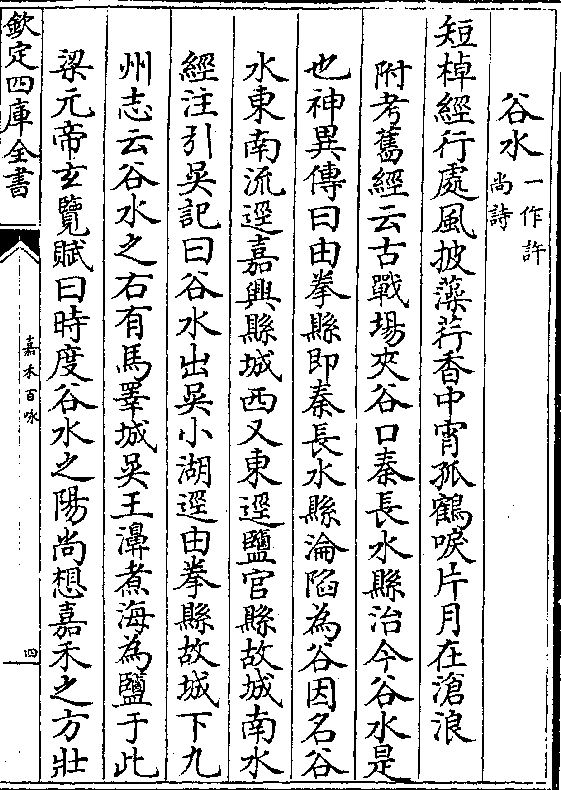 谷水一作許尚詩
短棹經行處風披藻荇香中宵孤鶴唳片月在滄浪
附考舊經云古戰場夾谷口秦長水縣治今谷水是
也神異傳曰由拳縣即秦長水縣淪陷為谷因名谷
水東南流逕嘉興縣城西又東逕鹽官縣故城南水
經注引吳記曰谷水出吳小湖逕由拳縣故城下九
州志云谷水之右有馬睪城吳王濞煮海為鹽于此
梁元帝玄覽賦曰時度谷水之陽尚想嘉禾之方壯
欽定四庫全書
嘉禾百咏
四